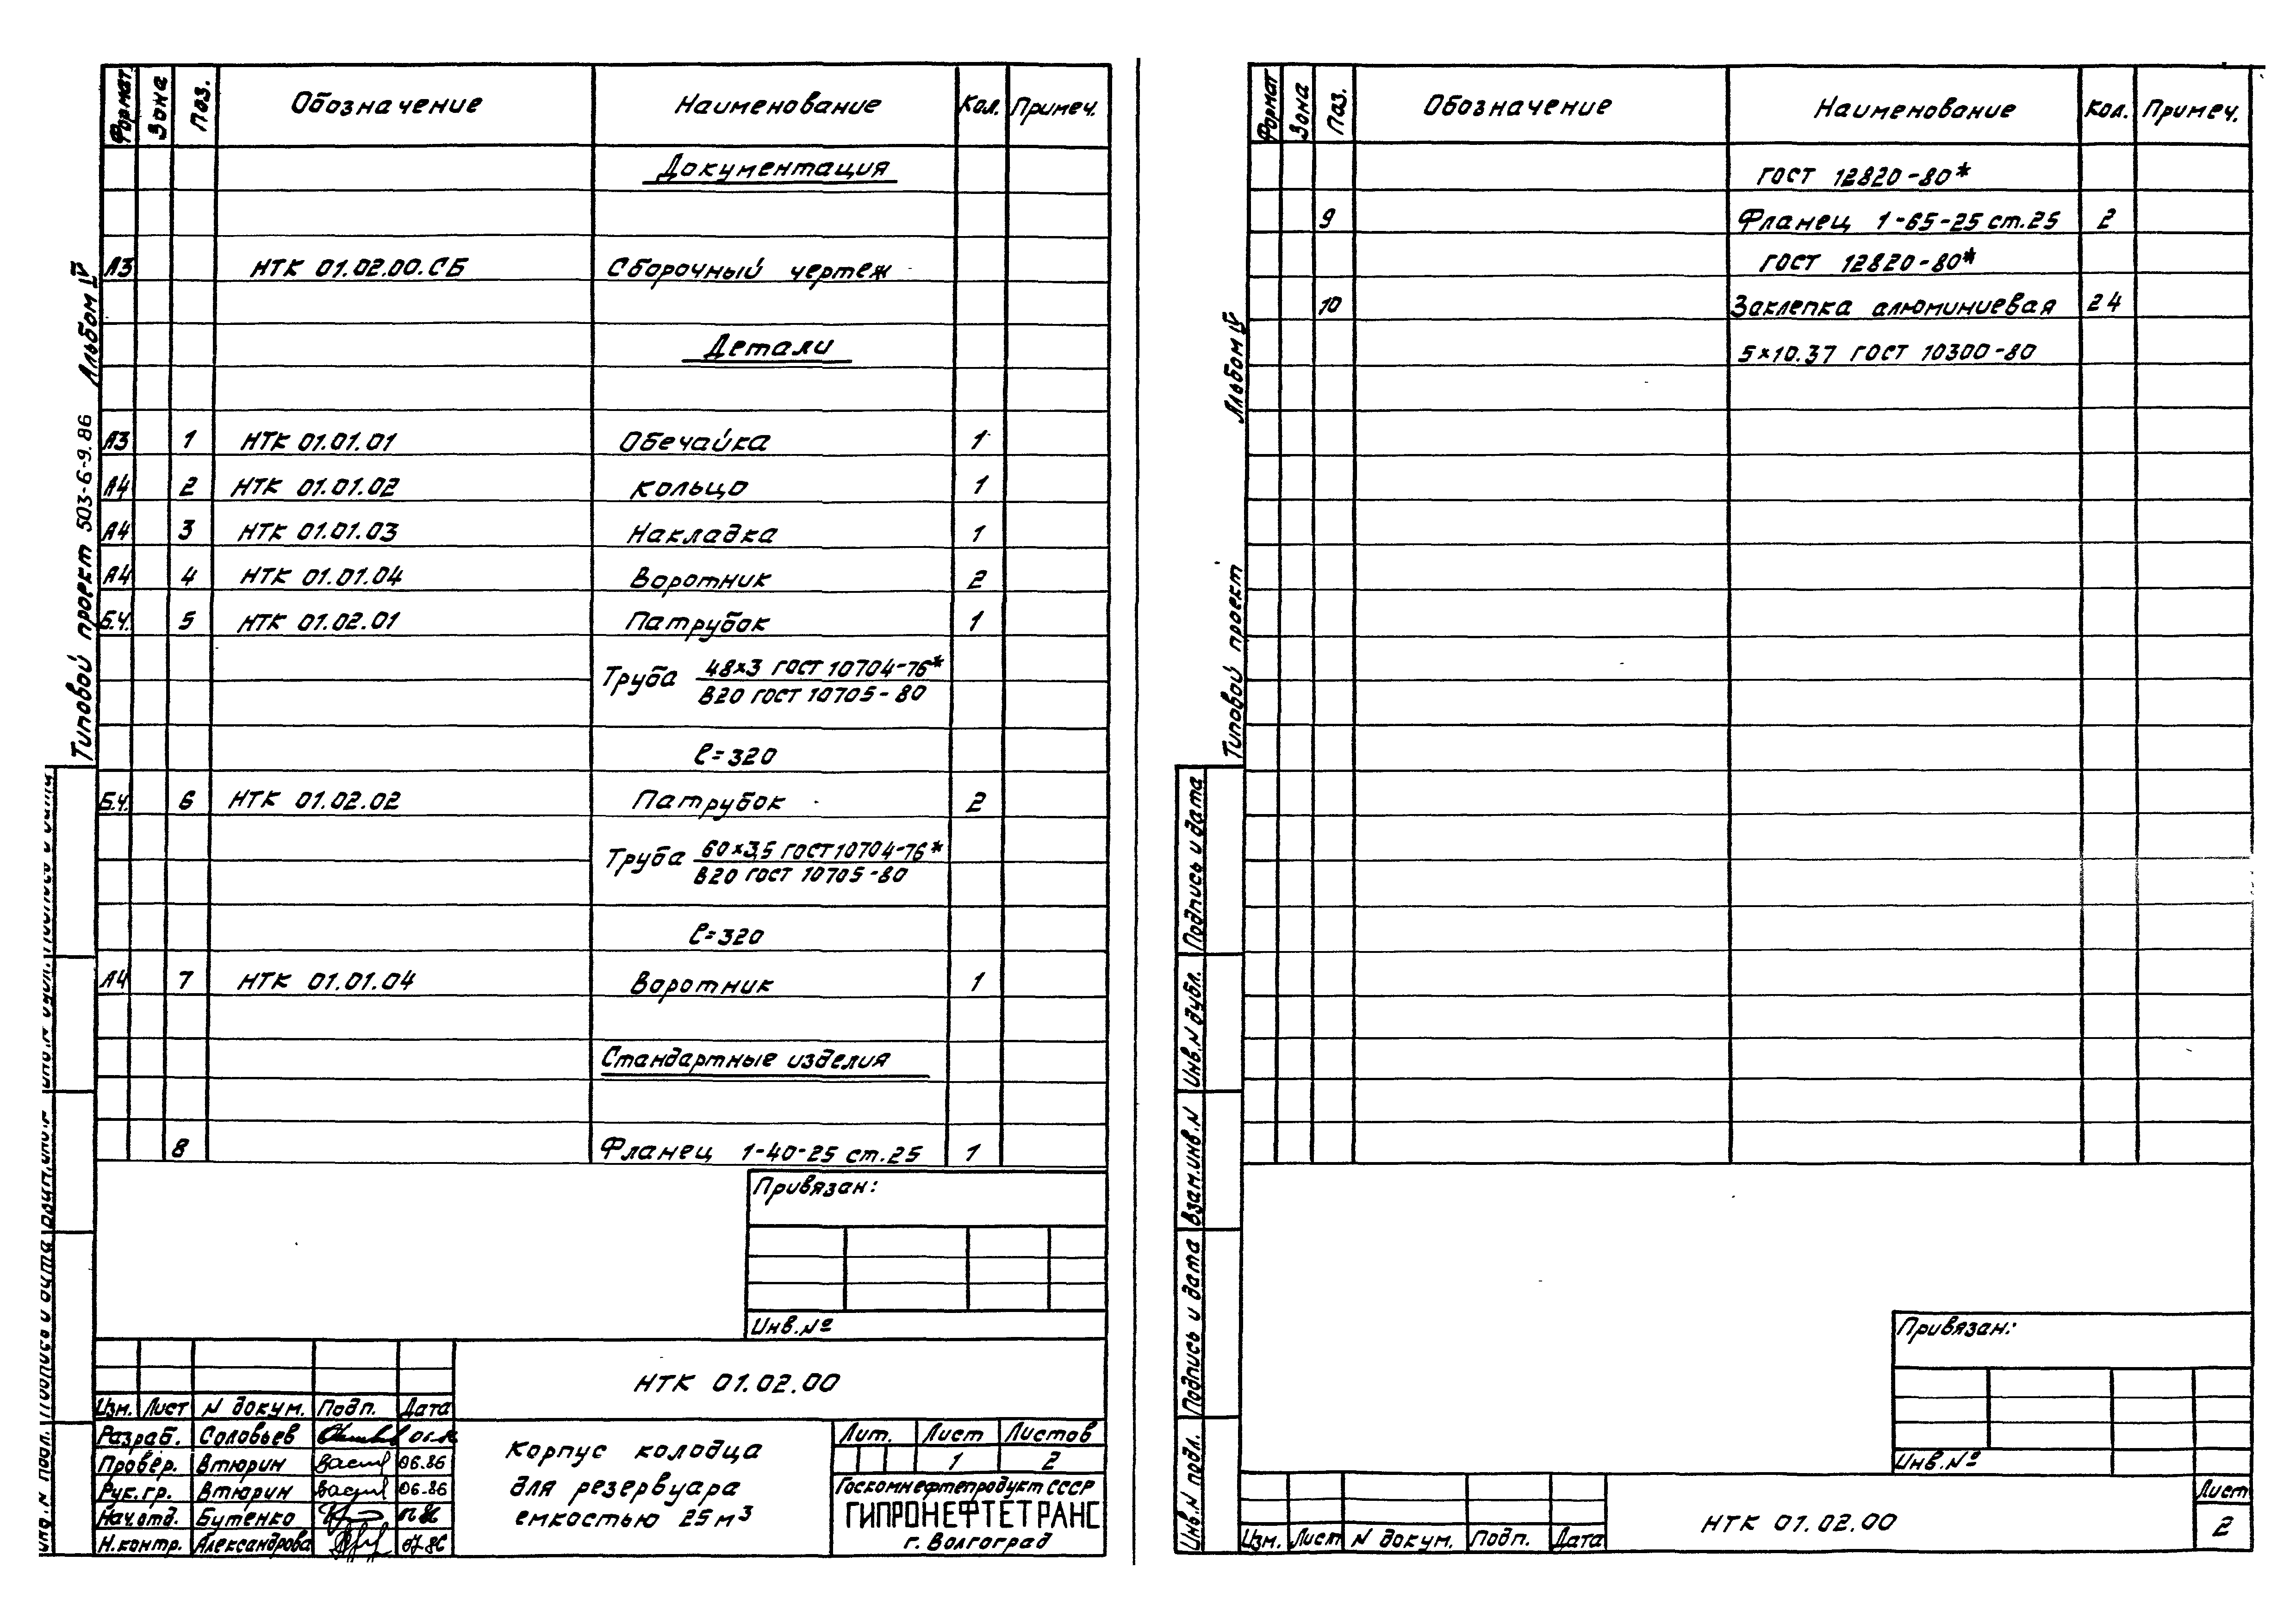 Формат Зона Поз. Обозначение Наименование Кол. Примеч.
Документация
А3 НТК 01.02.00.СБ Сборочный чертеж
Детали
А3 1 НТК 01.01.01 Обечайка 1
А4 2 НТК 01.01.02 Кольцо 1
А4 3 НТК 01.01.03 Накладка 1
А4 4 НТК 01.01.04 Воротник 2
Б.Ч. 5 НТК 01.02.01 Патрубок 1
Труба 48×3 ГОСТ 10704-76*
В20 ГОСТ 10705-80
ℓ=320
Б.Ч. 6 НТК 01.02.02 Патрубок 2
Труба 60×3,5 ГОСТ 10704-76*
В20 ГОСТ 10705-80
ℓ=320
А4 7 НТК 01.01.04 Воротник 1
Стандартные изделия
8 Фланец 1-40-25 ст.25 1
Типовой проект 503-6-9.86 Альбом IV
Привязан:
Инв.№
НТК 01.02.00
Изм. Лист N докум. Подп. Дата
Разраб. Соловьев
Провер. Втюрин 06.86
Рук.гр. Втюрин 06-86
Нач.отд. Бутенко
Н.контр. Александрова
Корпус колодца
для резервуара
емкостью 25м³
Лит. Лист Листов
1 2
Госкомнефтепродукт СССР
ГИПРОНЕФТЕТРАНС
г. Волгоград
Формат Зона Поз. Обозначение Наименование Кол. Примеч.
ГОСТ 12820-80*
9 Фланец 1-65-25 ст.25 2
ГОСТ 12820-80*
10 Заклепка алюминиевая 24
5×10.37 ГОСТ 10300-80
Типовой проект Альбом IV
Подпись и дата
Инв.N дубл.
Взам.инв.N
Подпись и дата
Инв.N подл.
Привязан:
Инв.№
Изм. Лист N докум. Подп. Дата
НТК 01.02.00
Лист
2